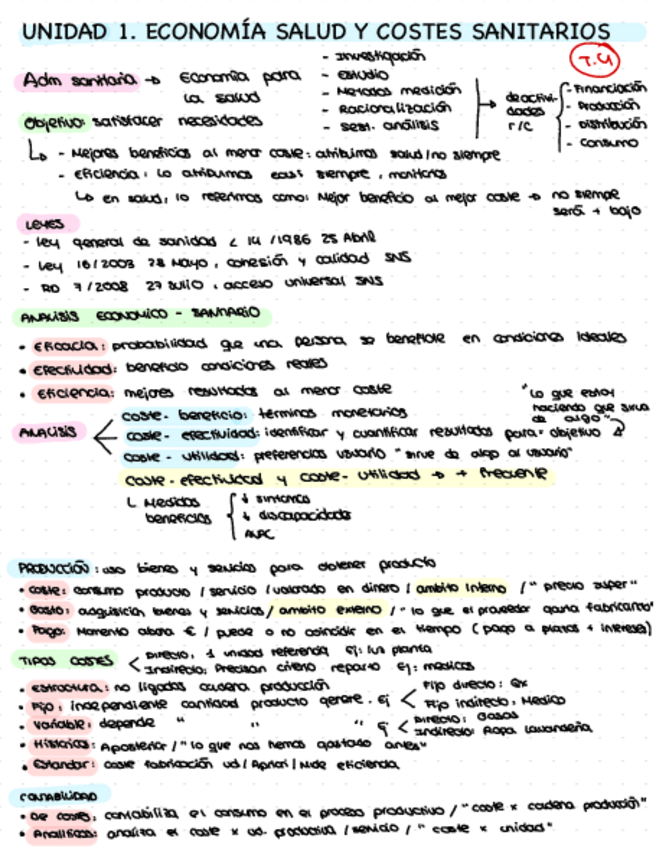 UNIDAD 1. ECONOMÍA SALUD Y COSTES SANITARIOS
T.4
Adm sanitaria → Economía para la salud
- Investigación
- estudio
- Metodos medición
- Racionalización
- análisis
de activi-
dades
r/c
- Financiación
- Producción
- Distribución
- Consumo
Objetivo: satisfacer necesidades
- Mejores beneficios al menor coste: atribuimos salud / no siempre
- Eficiencia: lo atribuimos siempre,
en salud, lo referimos como: Mejor beneficio al mejor coste → no siempre
será + bajo
LEYES
- Ley general de sanidad 14/1986 25 Abril
- Ley 16/2003 28 Mayo, cohesión y calidad SNS
- RD 7/2008 27 Julio, acceso universal SNS
ANALISIS ECONOMICO - SANITARIO
• Eficacia: probabilidad que una persona se beneficie en condiciones ideales
• Efectividad: beneficio condiciones reales
• Eficiencia: mejores resultados al menor coste
ANALISIS
coste - beneficio: términos monetarios
coste - efectividad: identificar y cuantificar resultados para objetivo
"Lo que estoy
haciendo que sirva
de algo"
coste - utilidad: preferencias usuario "sirve de algo al usuario"
coste - efectividad y coste - utilidad → + frecuente
Medidas
beneficios
↓ sintomas
↓ discapacidades
AVAC
PRODUCCIÓN: uso bienes y servicios para obtener producto
• coste: consumo producto / servicio / valorado en dinero / ambito interno / "precio super"
• Gasto: adquisicion bienes y servicios / ambito externo / "lo que el proveedor gasta fabricante"
• Pago: Momento abona € / puede o no coincidir en el tiempo (pago a plazos + intereses)
TIPOS COSTES
Directo, 1 unidad referencia Ej: luz planta
Indirecto: Precisan criterio reparto Ej: medicos
• Estructura: no ligados cadena producción
• Fijo: independiente cantidad producto genere. Ej
Fijo directo: Qx
Fijo indirecto: Medico
• Variable: depende " " " Ej
Directo: Gasas
Indirecto: Ropa lavandería
• Historico: Aposteriori / "lo que nos hemos gastado antes"
• Estandar: coste fabricación ud / Apriori / Mide eficiencia
CONTABILIDAD
• De costes: contabiliza el consumo en el proceso productivo / "coste x cadena producción"
• Analitica: analiza el coste x ud. productiva / servicio / "coste x unidad"